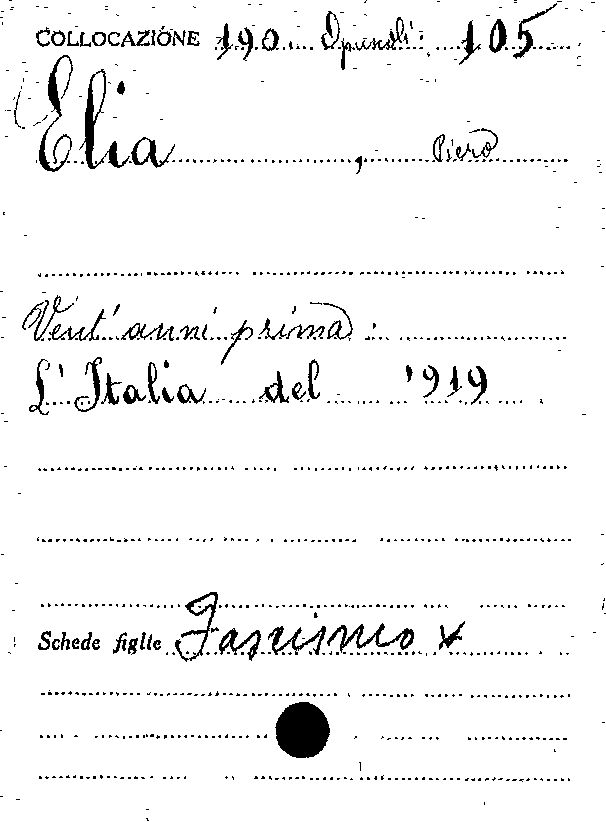 COLLOCAZIONE 190. Opuscoli: 105
Elia, Piero
Vent'anni prima:
L'Italia del 1919
Schede figlie Fascismo x